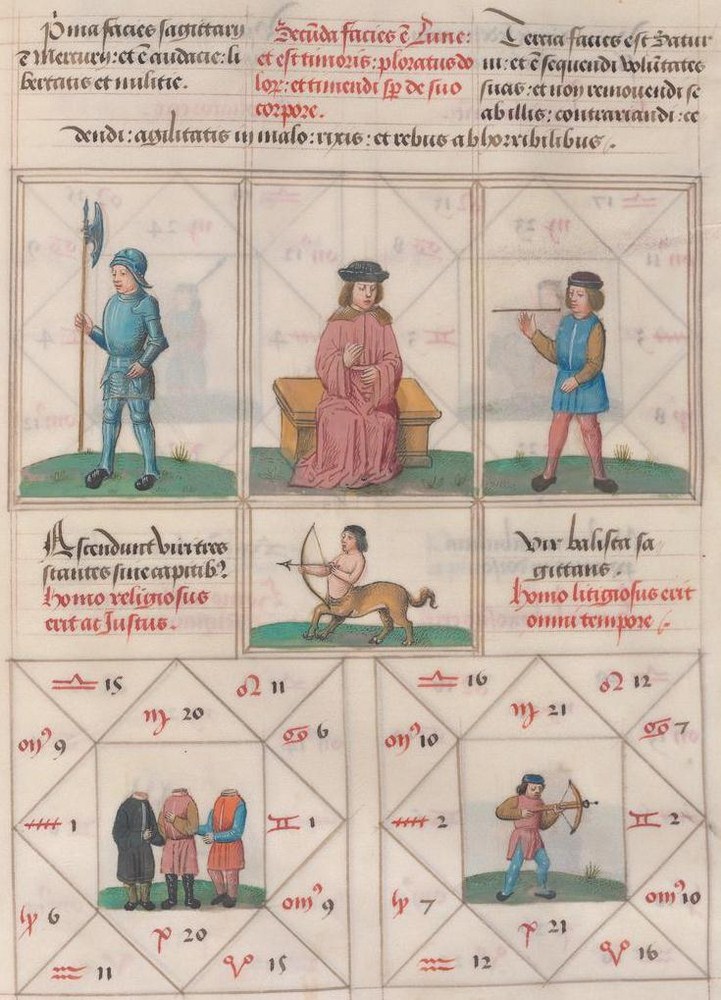 Prima facies sagittarij
est Mercurij: et ē audacie: li
bertatis et militie.
Secūda facies ē Lune:
et est timoris: ploratus do
lor: et timendi sp de suo
corpore.
Tercia facies est Satur
ni: et ē sequendi volūtates
suas: et non removendi se
ab illis: contrariandi: ce
dendi: agilitatis in malo: rixis: et rebus abhorribilibus.
Ascendunt viri tres
stantes sine capitib9
Homo religiosus
erit ac Justus.
Vir balista sa
gittans.
Homo litigiosus erit
omni tempore.
♎ 15
♌ 11
♏ 20
♋ 6
9
♐ 1
♊ 1
♑ 6
9
20
♒ 11
♈ 15
♎ 16
♌ 12
♏ 21
♋ 7
10
♐ 2
♊ 2
♑ 7
10
21
♒ 12
♈ 16